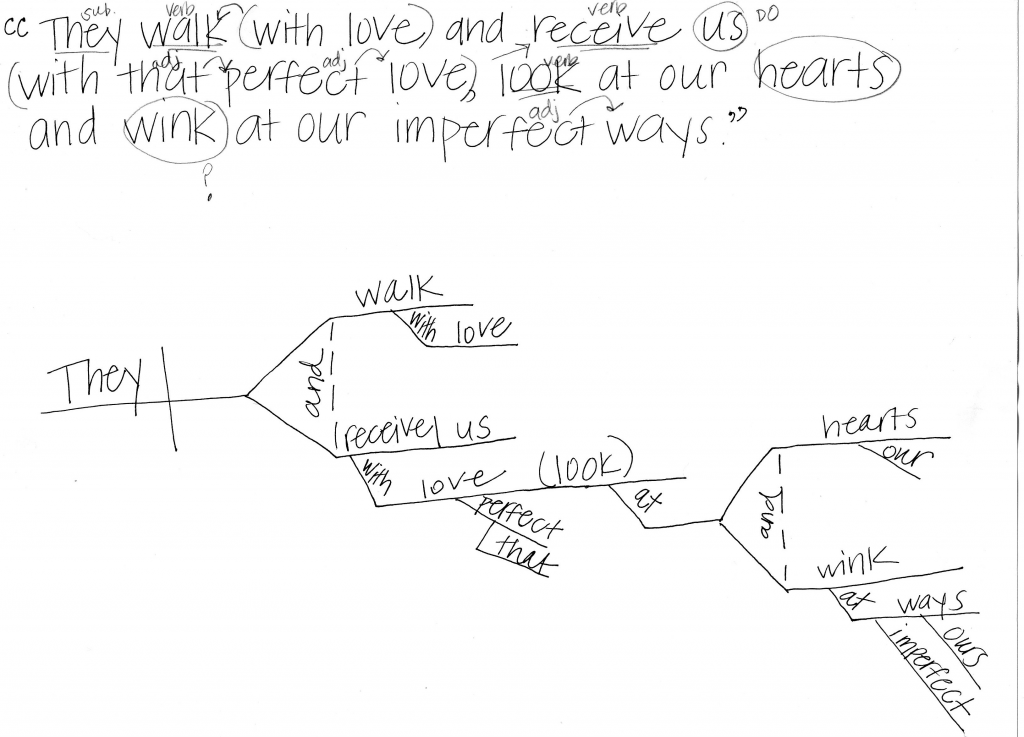 cc They walk (with love) and receive us DO
sub. verb verb
(with that perfect love), look at our hearts
adj adj verb
and wink at our imperfect ways."
adj
?
walk
with love
They
and
receive us
with love (look)
perfect
that
at
and
hearts
our
wink
at ways
imperfect
ours